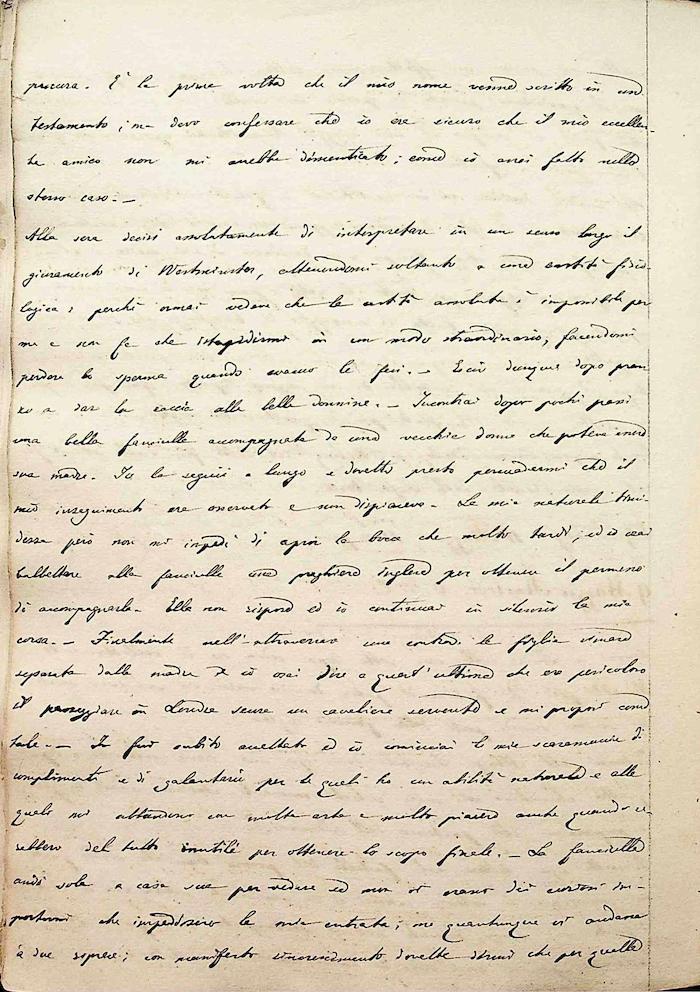 procura. È la prima volta che il mio nome venne scritto in un
testamento; ma devo confessare che io era sicuro che il mio eccellen-
te amico non mi avrebbe dimenticato; come io avrei fatto nello
stesso caso. —
Alla sera decisi assolutamente di interpretare in un senso largo il
giuramento di Westminster, attenendomi soltanto a una castità fisio-
logica; perché ormai vedeva che la castità assoluta è impossibile per
me e non fa che istupidirmi in un modo straordinario, facendomi
perdere lo sperma quando evacuo le feci. — Escii dunque dopo pran-
zo a dar la caccia alle belle donnine. — Incontrai dopo pochi passi
una bella fanciulla accompagnata da una vecchia donna che poteva essere
sua madre. Io la seguii a lungo e dovetti presto persuadermi che il
mio inseguimento era osservato e non dispiaceva. La mia naturale timi-
dezza però non mi impedì di aprir la bocca che molto tardi; ed io osai
balbettare alla fanciulla una preghiera inglese per ottenere il permesso
di accompagnarla. Ella non rispose ed io continuai in silenzio la mia
corsa. — Finalmente nell'attraversare una contrada la figlia rimase
separata dalla madre ed io osai dire a quest'ultima che era pericoloso
il passeggiare in Londra senza un cavaliere servente e mi proposi come
tale. — Io fui subito accettato ed io cominciai le mie scaramuccie di
complimenti e di galanteria per le quali ho un'abilità naturale e alle
quali mi abbandono con molta arte e molto piacere anche quando sa-
rebbero del tutto inutili per ottenere lo scopo finale. — La fanciulla
andò sola a casa sua per vedere se non vi erano dei curiosi im-
portuni che impedissero la mia entrata; ma quantunque vi andasse
a due riprese; con manifesto rincrescimento dovette dirmi che per quella